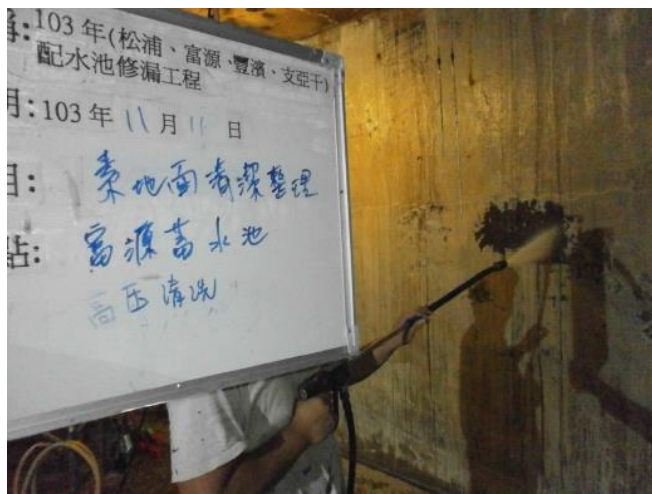 稱:103年(松浦、富源、豐濱、支亞干)
配水池修漏工程
期:103年11月11日
目:素地面清潔整理
點:富源蓄水池
高压清洗